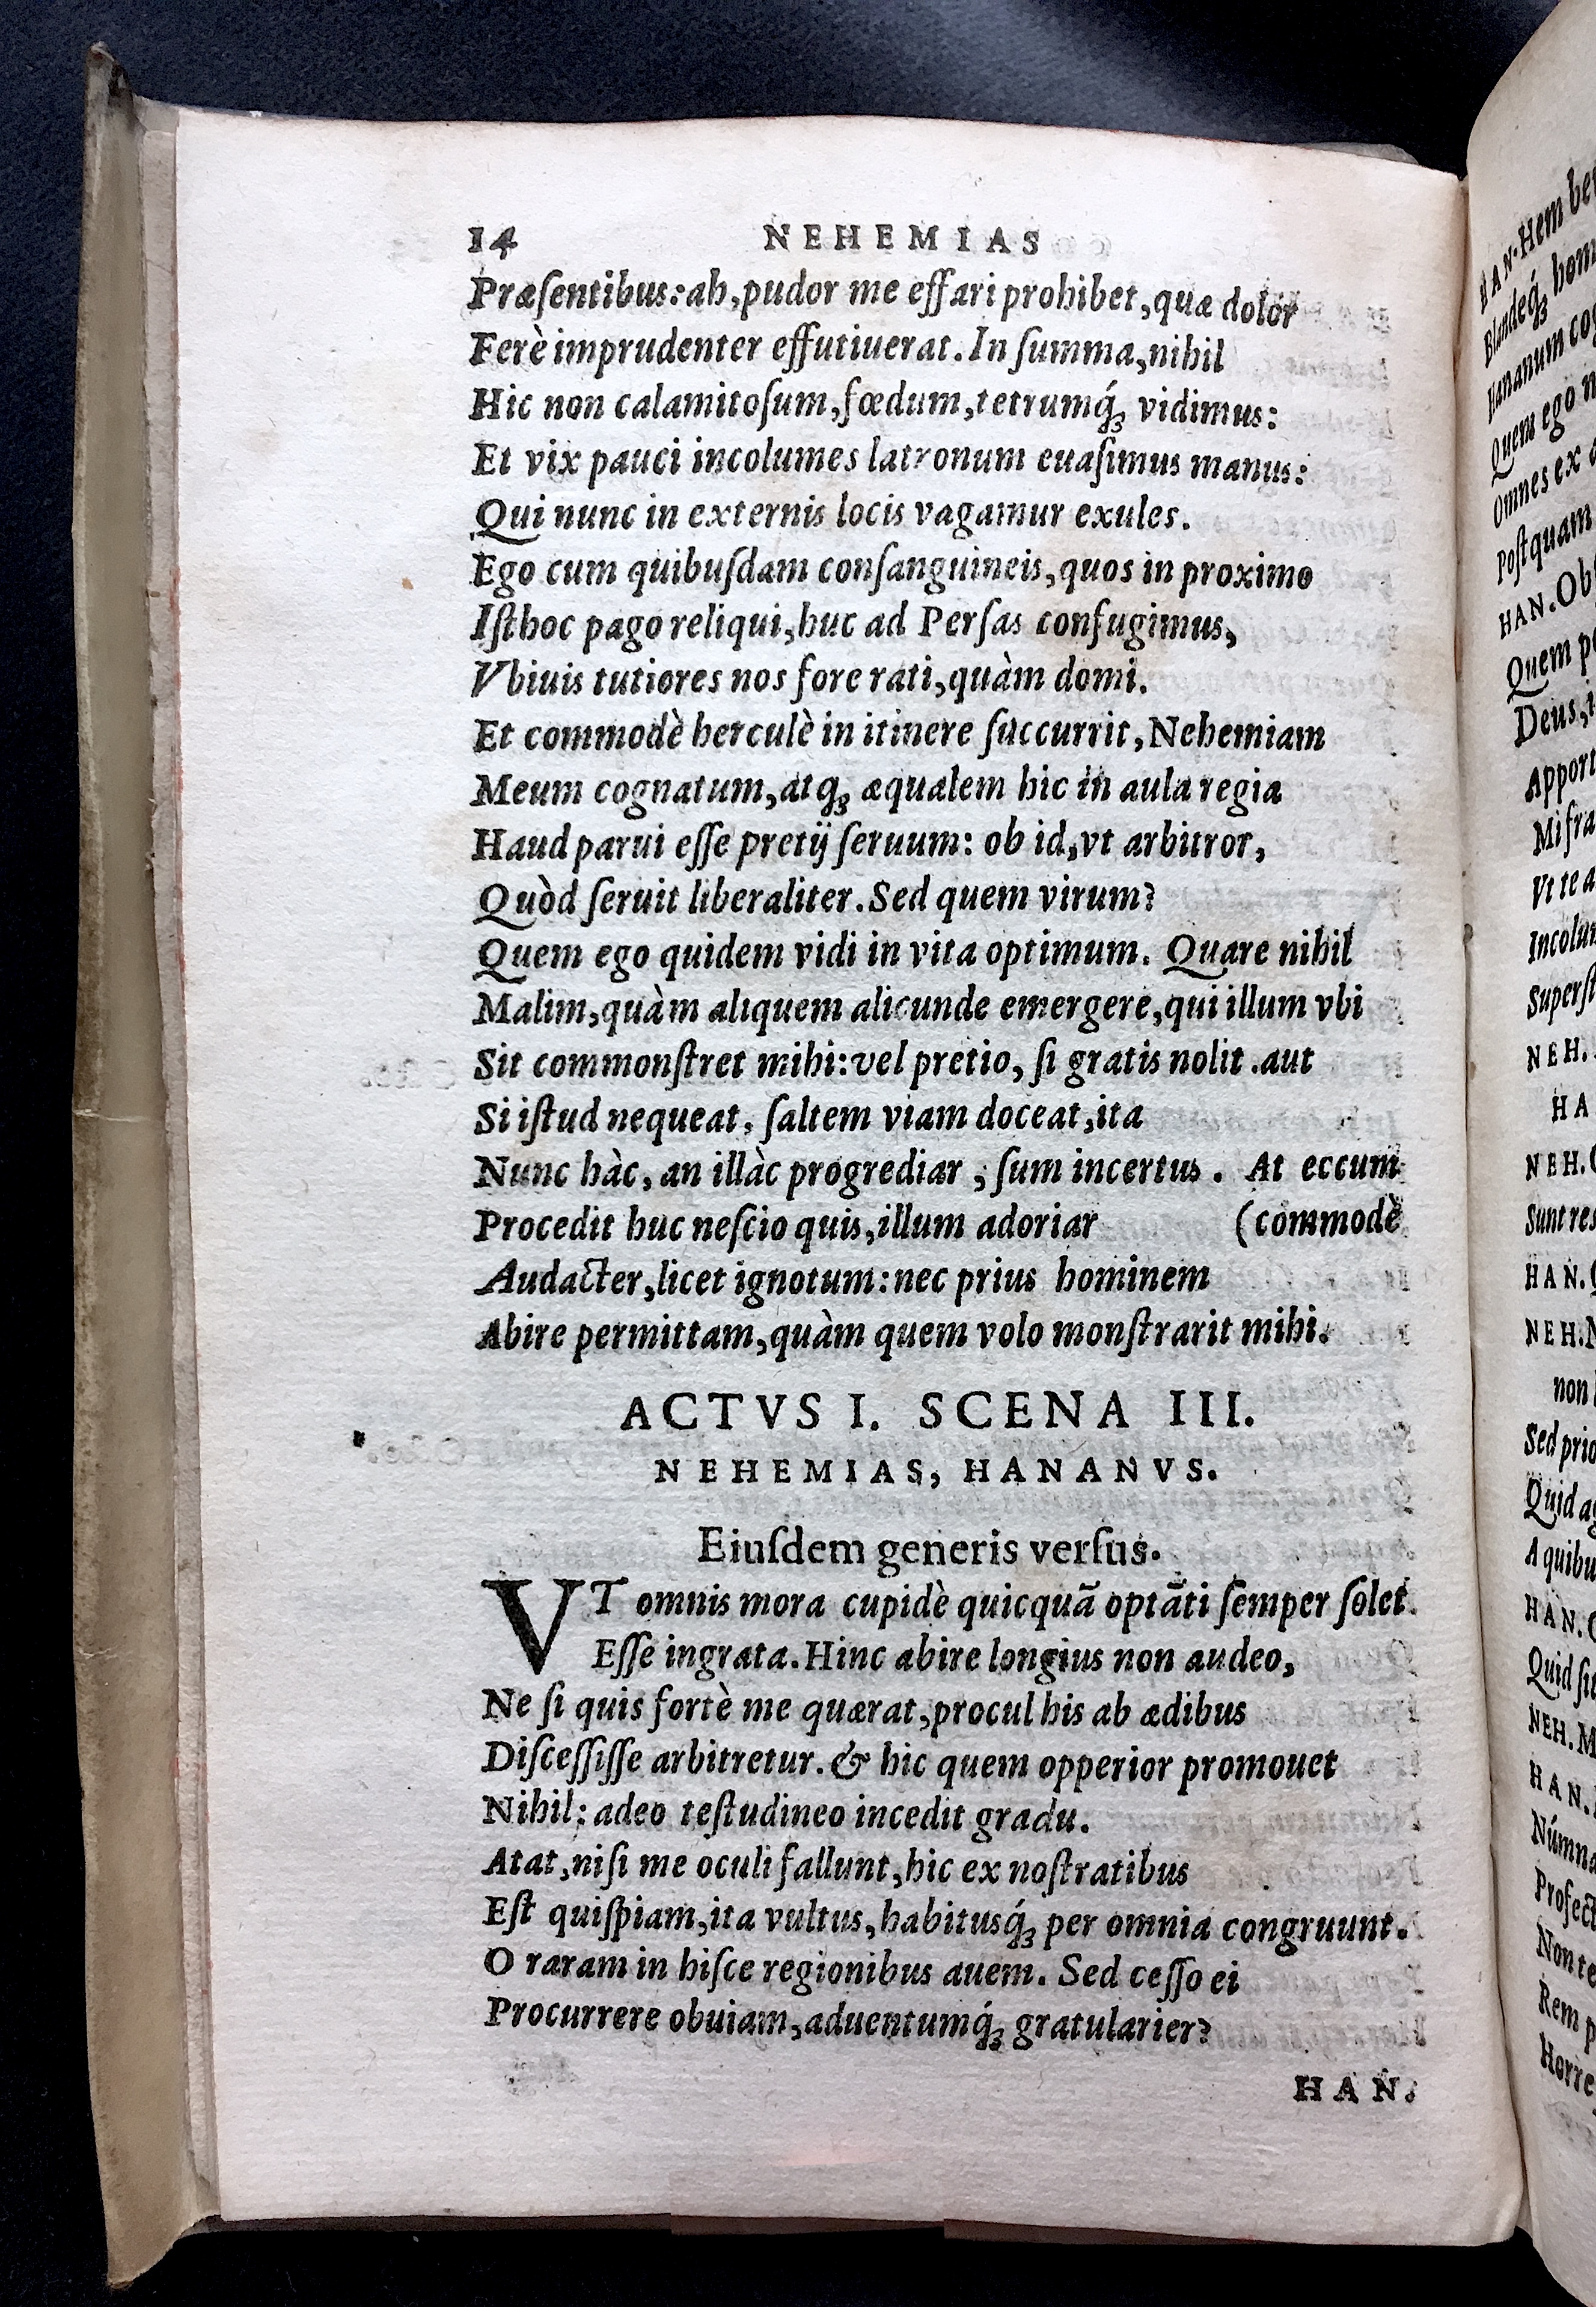 14 NEHEMIAS
Præſentibus: ah, pudor me effari prohibet, quæ dolor
Ferè imprudenter effutiuerat. In ſumma, nihil
Hic non calamitoſum, fœdum, tetrumq́ꝫ vidimus:
Et vix pauci incolumes latronum euaſimus manus:
Qui nunc in externis locis vagamur exules.
Ego cum quibuſdam conſanguineis, quos in proximo
Iſthoc pago reliqui, huc ad Perſas confugimus,
Vbiuis tutiores nos fore rati, quàm domi.
Et commodè herculè in itinere ſuccurrit, Nehemiam
Meum cognatum, atqꝫ æqualem hic in aula regia
Haud parui eſſe pretij ſeruum: ob id, vt arbitror,
Quòd ſeruit liberaliter. Sed quem virum?
Quem ego quidem vidi in vita optimum. Quare nihil
Malim, quàm aliquem alicunde emergere, qui illum vbi
Sit commonſtret mihi: vel pretio, ſi gratis nolit. aut
Si iſtud nequeat, ſaltem viam doceat, ita
Nunc hàc, an illàc progrediar, ſum incertus. At eccum
Procedit huc neſcio quis, illum adoriar (commodè
Audacter, licet ignotum: nec prius hominem
Abire permittam, quàm quem volo monſtrarit mihi.
ACTVS I. SCENA III.
NEHEMIAS, HANANVS.
Eiuſdem generis verſus.
VT omnis mora cupidè quicquã optãti ſemper ſolet
Eſſe ingrata. Hinc abire longius non audeo,
Ne ſi quis fortè me quærat, procul his ab ædibus
Diſceſſiſſe arbitretur. & hic quem opperior promouet
Nihil: adeo teſtudineo incedit gradu.
Atat, niſi me oculi fallunt, hic ex noſtratibus
Eſt quiſpiam, ita vultus, habitusq́ꝫ per omnia congruunt.
O raram in hiſce regionibus auem. Sed ceſſo ei
Procurrere obuiam, aduentumq́ꝫ gratularier?
HAN.